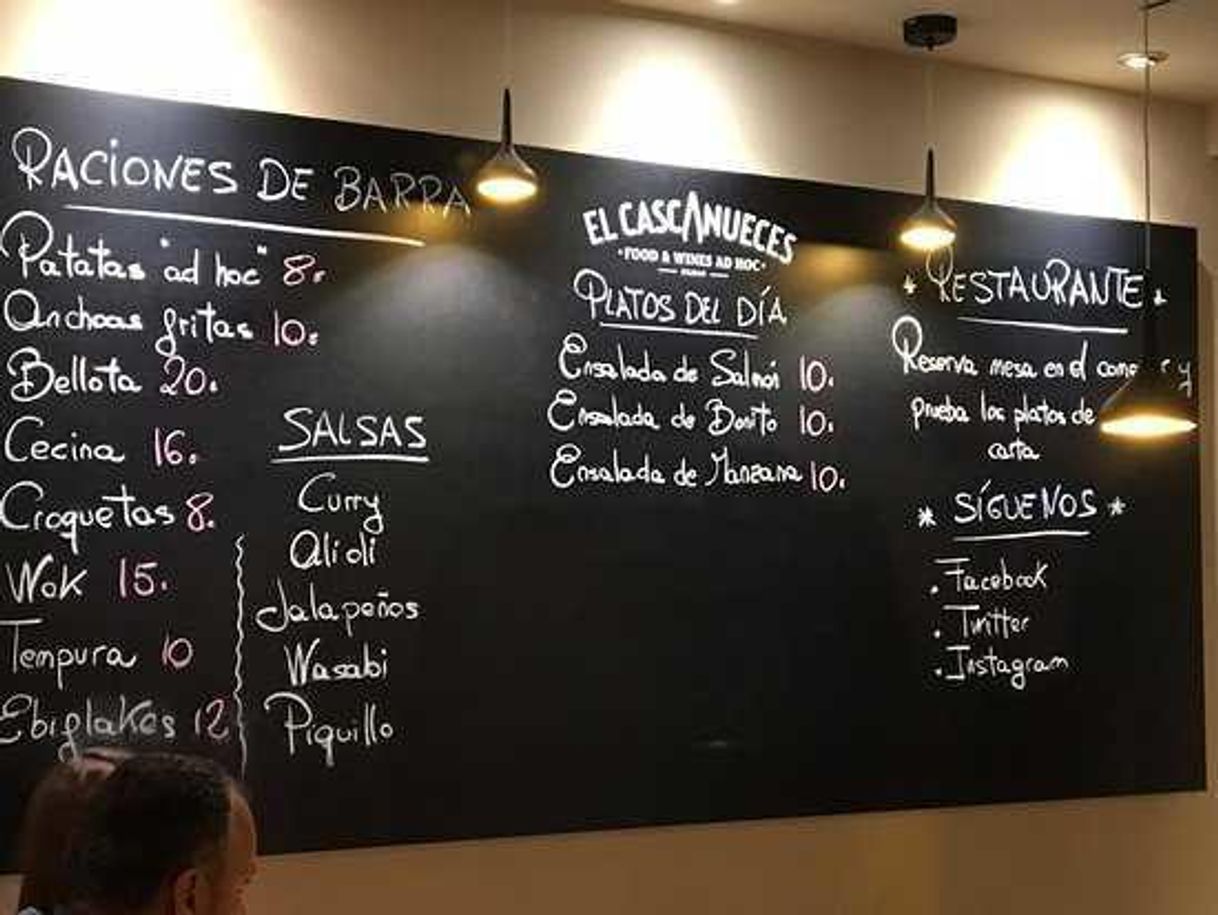 RACIONES DE BARRA
Patatas "ad hoc" 8.
Anchoas fritas 10.
Bellota 20.
Cecina 16.
Croquetas 8.
Wok 15.
Tempura 10
Ebiflakes 12
SALSAS
Curry
Alioli
Jalapeños
Wasabi
Piquillo
EL CASCANUECES
FOOD & WINES AD HOC
PLATOS DEL DÍA
Ensalada de Salmón 10.
Ensalada de Bonito 10.
Ensalada de Manzana 10.
* RESTAURANTE *
Reserva mesa en el y
prueba los platos de
carta
* SÍGUENOS *
. Facebook
. Twitter
. Instagram